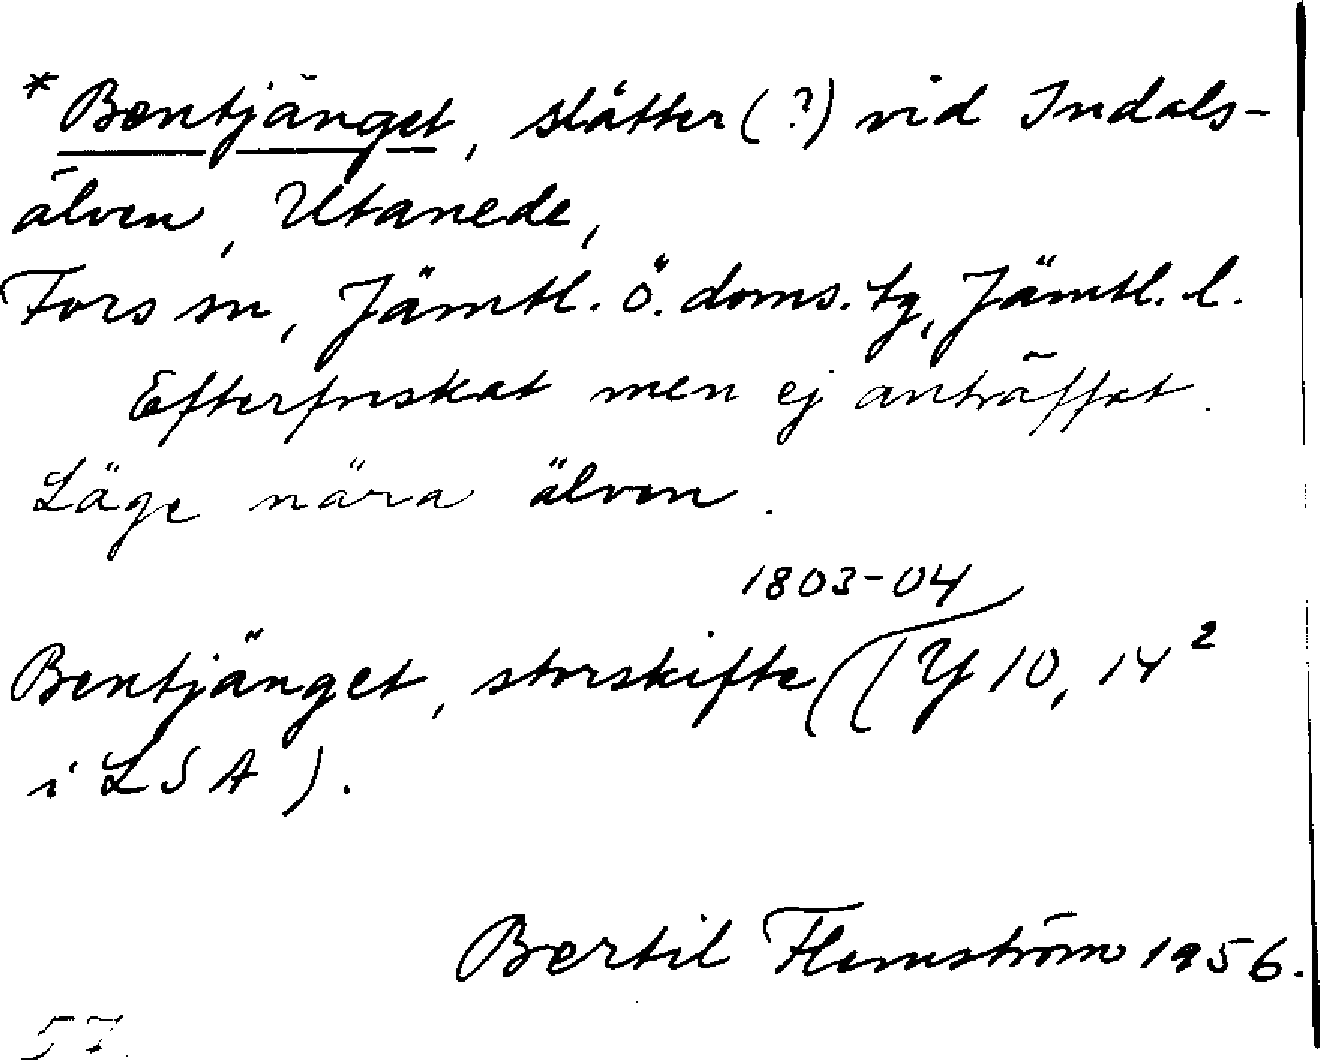 *Bentjänget, slåtter (?) vid Indals-
älven, Utanede,
Fors sn, Jämtl. ö. doms. tg, Jämtl. l.
Efterfriskat men ej anträffat.
Läge nära älven.
1803-04
Bentjänget, storskifte ((Y 10, 14²
i LSA).
Bertil Flemström 1956.
57.